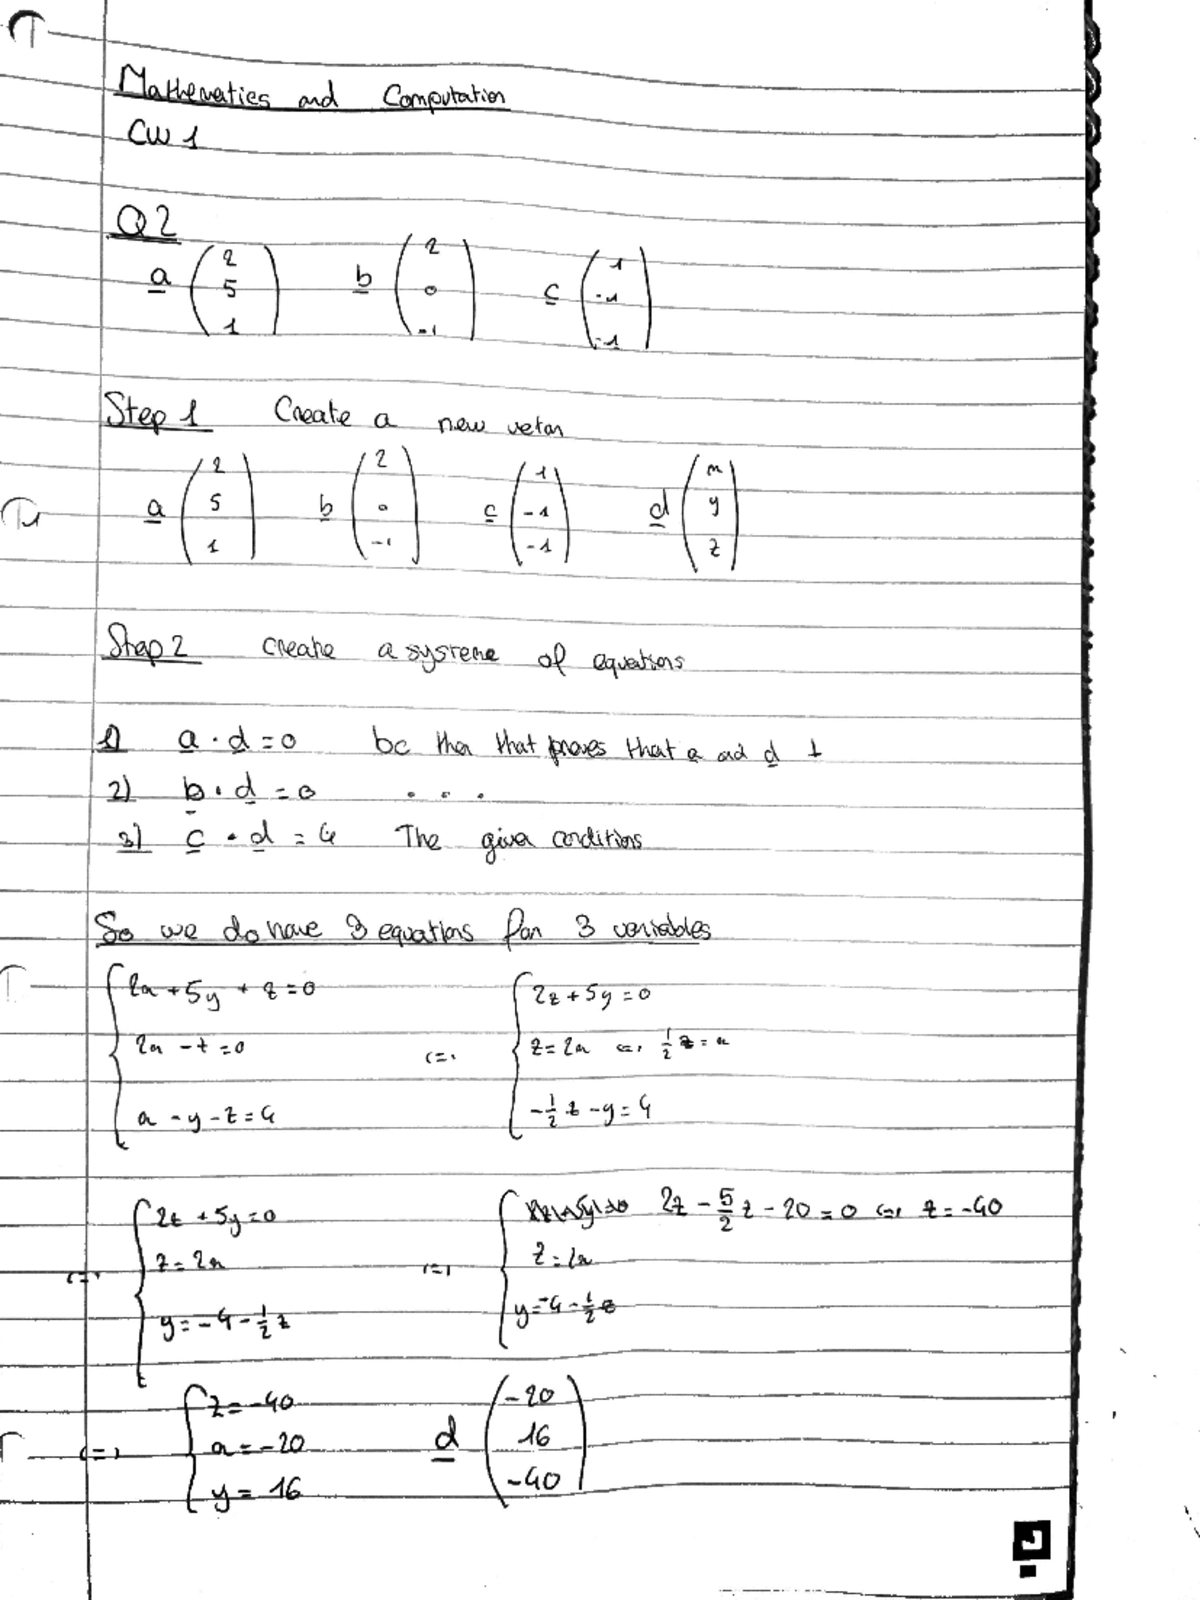 Mathematics and Computation
CW 1
Q2
a (2 5 1) b (2 0 -1) c (1 -1 -1)
Step 1 Create a new vetor
a (2 5 1) b (2 0 -1) c (1 -1 -1) d (x y z)
Step 2 create a systeme of equations
1) a · d = 0 bc then that proves that a and d ⊥
2) b · d = 0 . . .
3) c · d = 4 The given conditions
So we do have 3 equations for 3 variables
2x + 5y + z = 0
2x - z = 0
x - y - z = 4
<=>
2z + 5y = 0
z = 2x <=> 1/2 z = x
-1/2 z - y = 4
<=>
2z + 5y = 0
z = 2x
y = -4 - 1/2 z
<=>
2z - 5/2 z - 20 = 0 <=> z = -40
z = 2x
y = -4 - 1/2 z
<=>
z = -40
x = -20
y = 16
d (-20 16 -40)